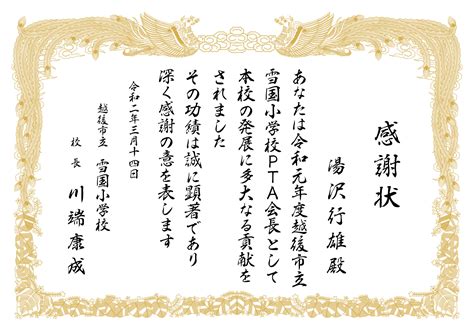 感謝状
湯沢行雄殿
あなたは令和元年度越後市立
雪国小学校PTA会長として
本校の発展に多大なる貢献を
されました
その功績は誠に顕著であり
深く感謝の意を表します
令和二年三月十四日
越後市立 雪国小学校
校長 川端康成